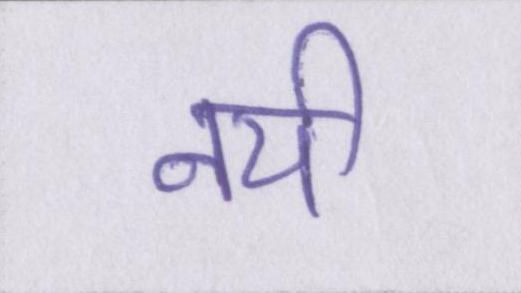 नयी